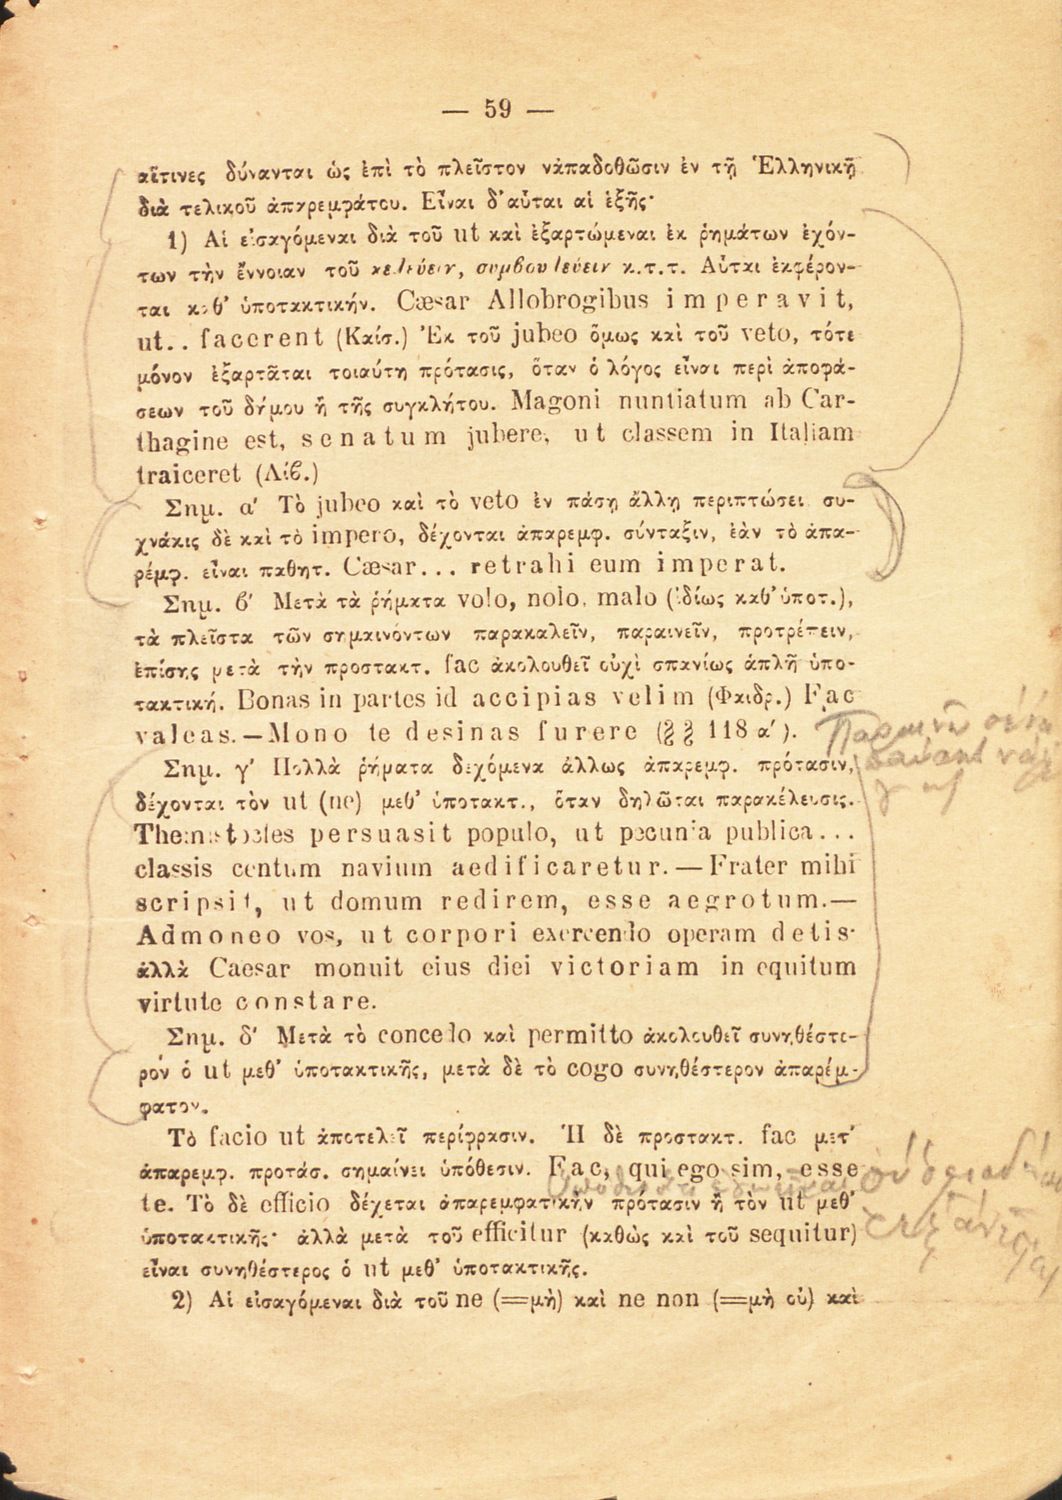 — 59 —
αἵτινες δύνανται ὡς ἐπὶ τὸ πλεῖστον νἀπαδοθῶσιν ἐν τῇ Ἑλληνικῇ
διὰ τελικοῦ ἀπαρεμφάτου. Εἶναι δ' αὗται αἱ ἑξῆς·
1) Αἱ εἰσαγόμεναι διὰ τοῦ ut καὶ ἐξαρτώμεναι ἐκ ῥημάτων ἐχόν-
των τὴν ἔννοιαν τοῦ κελεύειν, συμβουλεύειν κ.τ.τ. Αὗται ἐκφέρον-
ται καθ' ὑποτακτικήν. Cæsar Allobrogibus imperavit,
ut.. facerent (Καίσ.) Ἐκ τοῦ jubeo ὅμως καὶ τοῦ veto, τότε
μόνον ἐξαρτᾶται τοιαύτη πρότασις, ὅταν ὁ λόγος εἶναι περὶ ἀποφά-
σεων τοῦ δήμου ἢ τῆς συγκλήτου. Magoni nuntiatum ab Car-
thagine est, senatum jubere, ut classem in Italiam
traiceret (Λίϐ.)
Σημ. α' Τὸ jubeo καὶ τὸ veto ἐν πάσῃ ἄλλῃ περιπτώσει συ-
χνάκις δὲ καὶ τὸ impero, δέχονται ἀπαρεμφ. σύνταξιν, ἐὰν τὸ ἀπα-
ρέμφ. εἶναι παθητ. Cæsar... retrahi eum imperat.
Σημ. ϐ' Μετὰ τὰ ῥήματα volo, nolo, malo (ἰδίως καθ' ὑποτ.),
τὰ πλεῖστα τῶν σημαινόντων παρακαλεῖν, παραινεῖν, προτρέπειν,
ἐπίσης μετὰ τὴν προστακτ. fac ἀκολουθεῖ οὐχὶ σπανίως ἁπλῆ ὑπο-
τακτική. Bonas in partes id accipias velim (Φαιδρ.) Fac
valeas.—Mono te desinas furere (§ § 118 α').
Σημ. γ' Πολλὰ ῥήματα δεχόμενα ἄλλως ἀπαρεμφ. πρότασιν,
δέχονται τὸν ut (ne) μεθ' ὑποτακτ., ὅταν δηλῶται παρακέλευσις.
Themistocles persuasit populo, ut pecunia publica...
classis centum navium aedificaretur.—Frater mihi
scripsit, ut domum redirem, esse aegrotum.—
Admoneo vos, ut corpori exercendo operam detis·
ἀλλὰ Caesar monuit eius diei victoriam in equitum
virtute constare.
Σημ. δ' Μετὰ τὸ concedo καὶ permitto ἀκολουθεῖ συνηθέστε-
ρον ὁ ut μεθ' ὑποτακτικῆς, μετὰ δὲ τὸ cogo συνηθέστερον ἀπαρέμ-
φατον.
Τὸ facio ut ἀποτελεῖ περίφρασιν. Ἡ δὲ προστακτ. fac μετ'
ἀπαρεμφ. προτάσ. σημαίνει ὑπόθεσιν. Fac, qui ego sim, esse
te. Τὸ δὲ efficio δέχεται ἀπαρεμφατικὴν πρότασιν ἢ τὸν ut μεθ'
ὑποτακτικῆς· ἀλλὰ μετὰ τοῦ efficitur (καθὼς καὶ τοῦ sequitur)
εἶναι συνηθέστερος ὁ ut μεθ' ὑποτακτικῆς.
2) Αἱ εἰσαγόμεναι διὰ τοῦ ne (=μὴ) καὶ ne non (=μὴ οὐ) καὶ